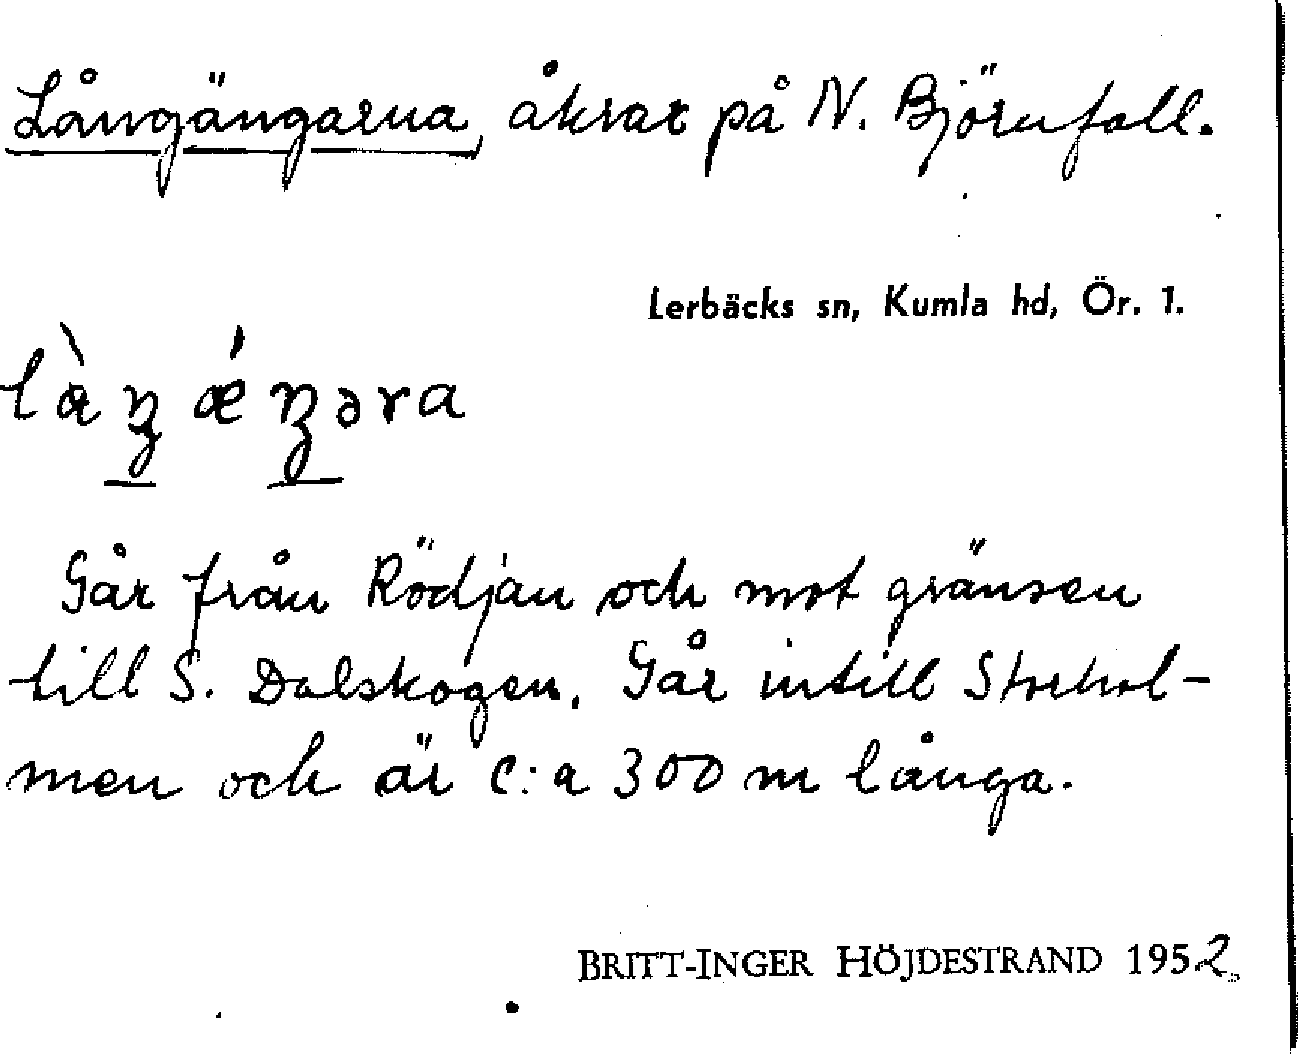 Långängarna, åkrar på N. Björnfall.
Lerbäcks sn, Kumla hd, Ör. 1.
Går från Rödjan och mot gränsen
till S. Dalskogen. Går intill Storhol-
men och är c:a 300 m långa.
BRITT-INGER HÖJDESTRAND 1952